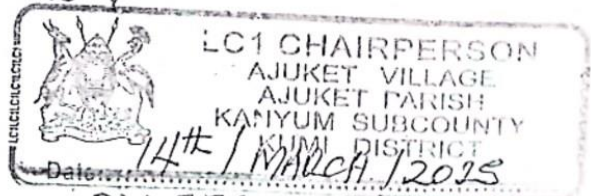 LC1 CHAIRPERSON
AJUKET VILLAGE
AJUKET PARISH
KANYUM SUBCOUNTY
KUMI DISTRICT
Date: 14th / MARCH / 2025